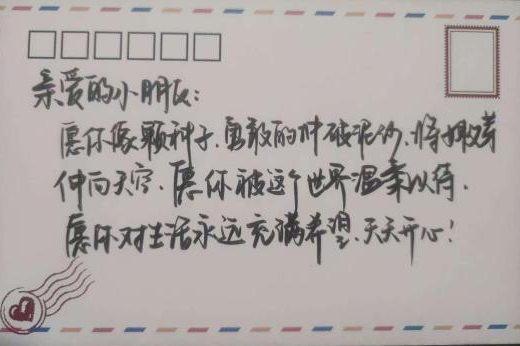 亲爱的小朋友：
愿你像颗种子，勇敢的冲破泥沙，将嫩芽
伸向天空，愿你被这个世界温柔以待，
愿你对生活永远充满希望，天天开心！